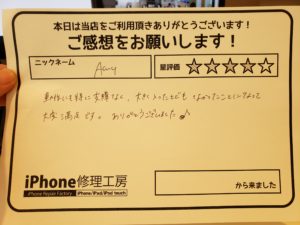 本日は当店をご利用頂きありがとうございます！
ご感想をお願いします！
ニックネーム
星評価 ☆☆☆☆☆
動作にも特に支障なく、
大満足です。ありがとうございました
iPhone修理工房
iPhone Repair Factory iPhone/iPad/iPod touch
から来ました